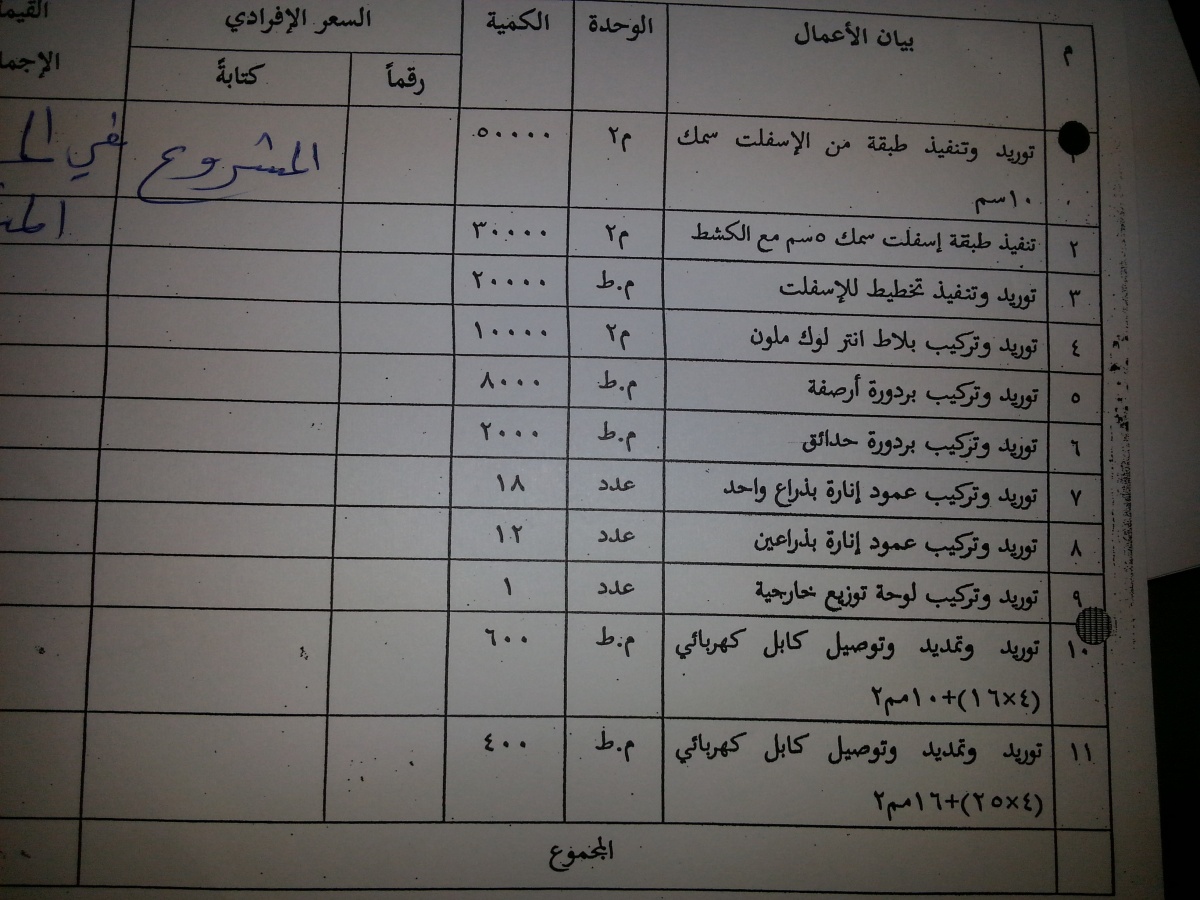 م بيان الأعمال الوحدة الكمية السعر الإفرادي
رقماً كتابةً
١ توريد وتنفيذ طبقة من الإسفلت سمك م٢ ٥٠٠٠٠ المشروع في
١٠سم
٢ تنفيذ طبقة إسفلت سمك ٥سم مع الكشط م٢ ٣٠٠٠٠
٣ توريد وتنفيذ تخطيط للإسفلت م.ط ٢٠٠٠٠
٤ توريد وتركيب بلاط انتر لوك ملون م٢ ١٠٠٠٠
٥ توريد وتركيب بردورة أرصفة م.ط ٨٠٠٠
٦ توريد وتركيب بردورة حدائق م.ط ٢٠٠٠
٧ توريد وتركيب عمود إنارة بذراع واحد عدد ١٨
٨ توريد وتركيب عمود إنارة بذراعين عدد ١٢
٩ توريد وتركيب لوحة توزيع خارجية عدد ١
١٠ توريد وتمديد وتوصيل كابل كهربائي م.ط ٦٠٠
(٤×١٦)+١٠مم٢
١١ توريد وتمديد وتوصيل كابل كهربائي م.ط ٤٠٠
(٤×٢٥)+١٦مم٢
المجموع